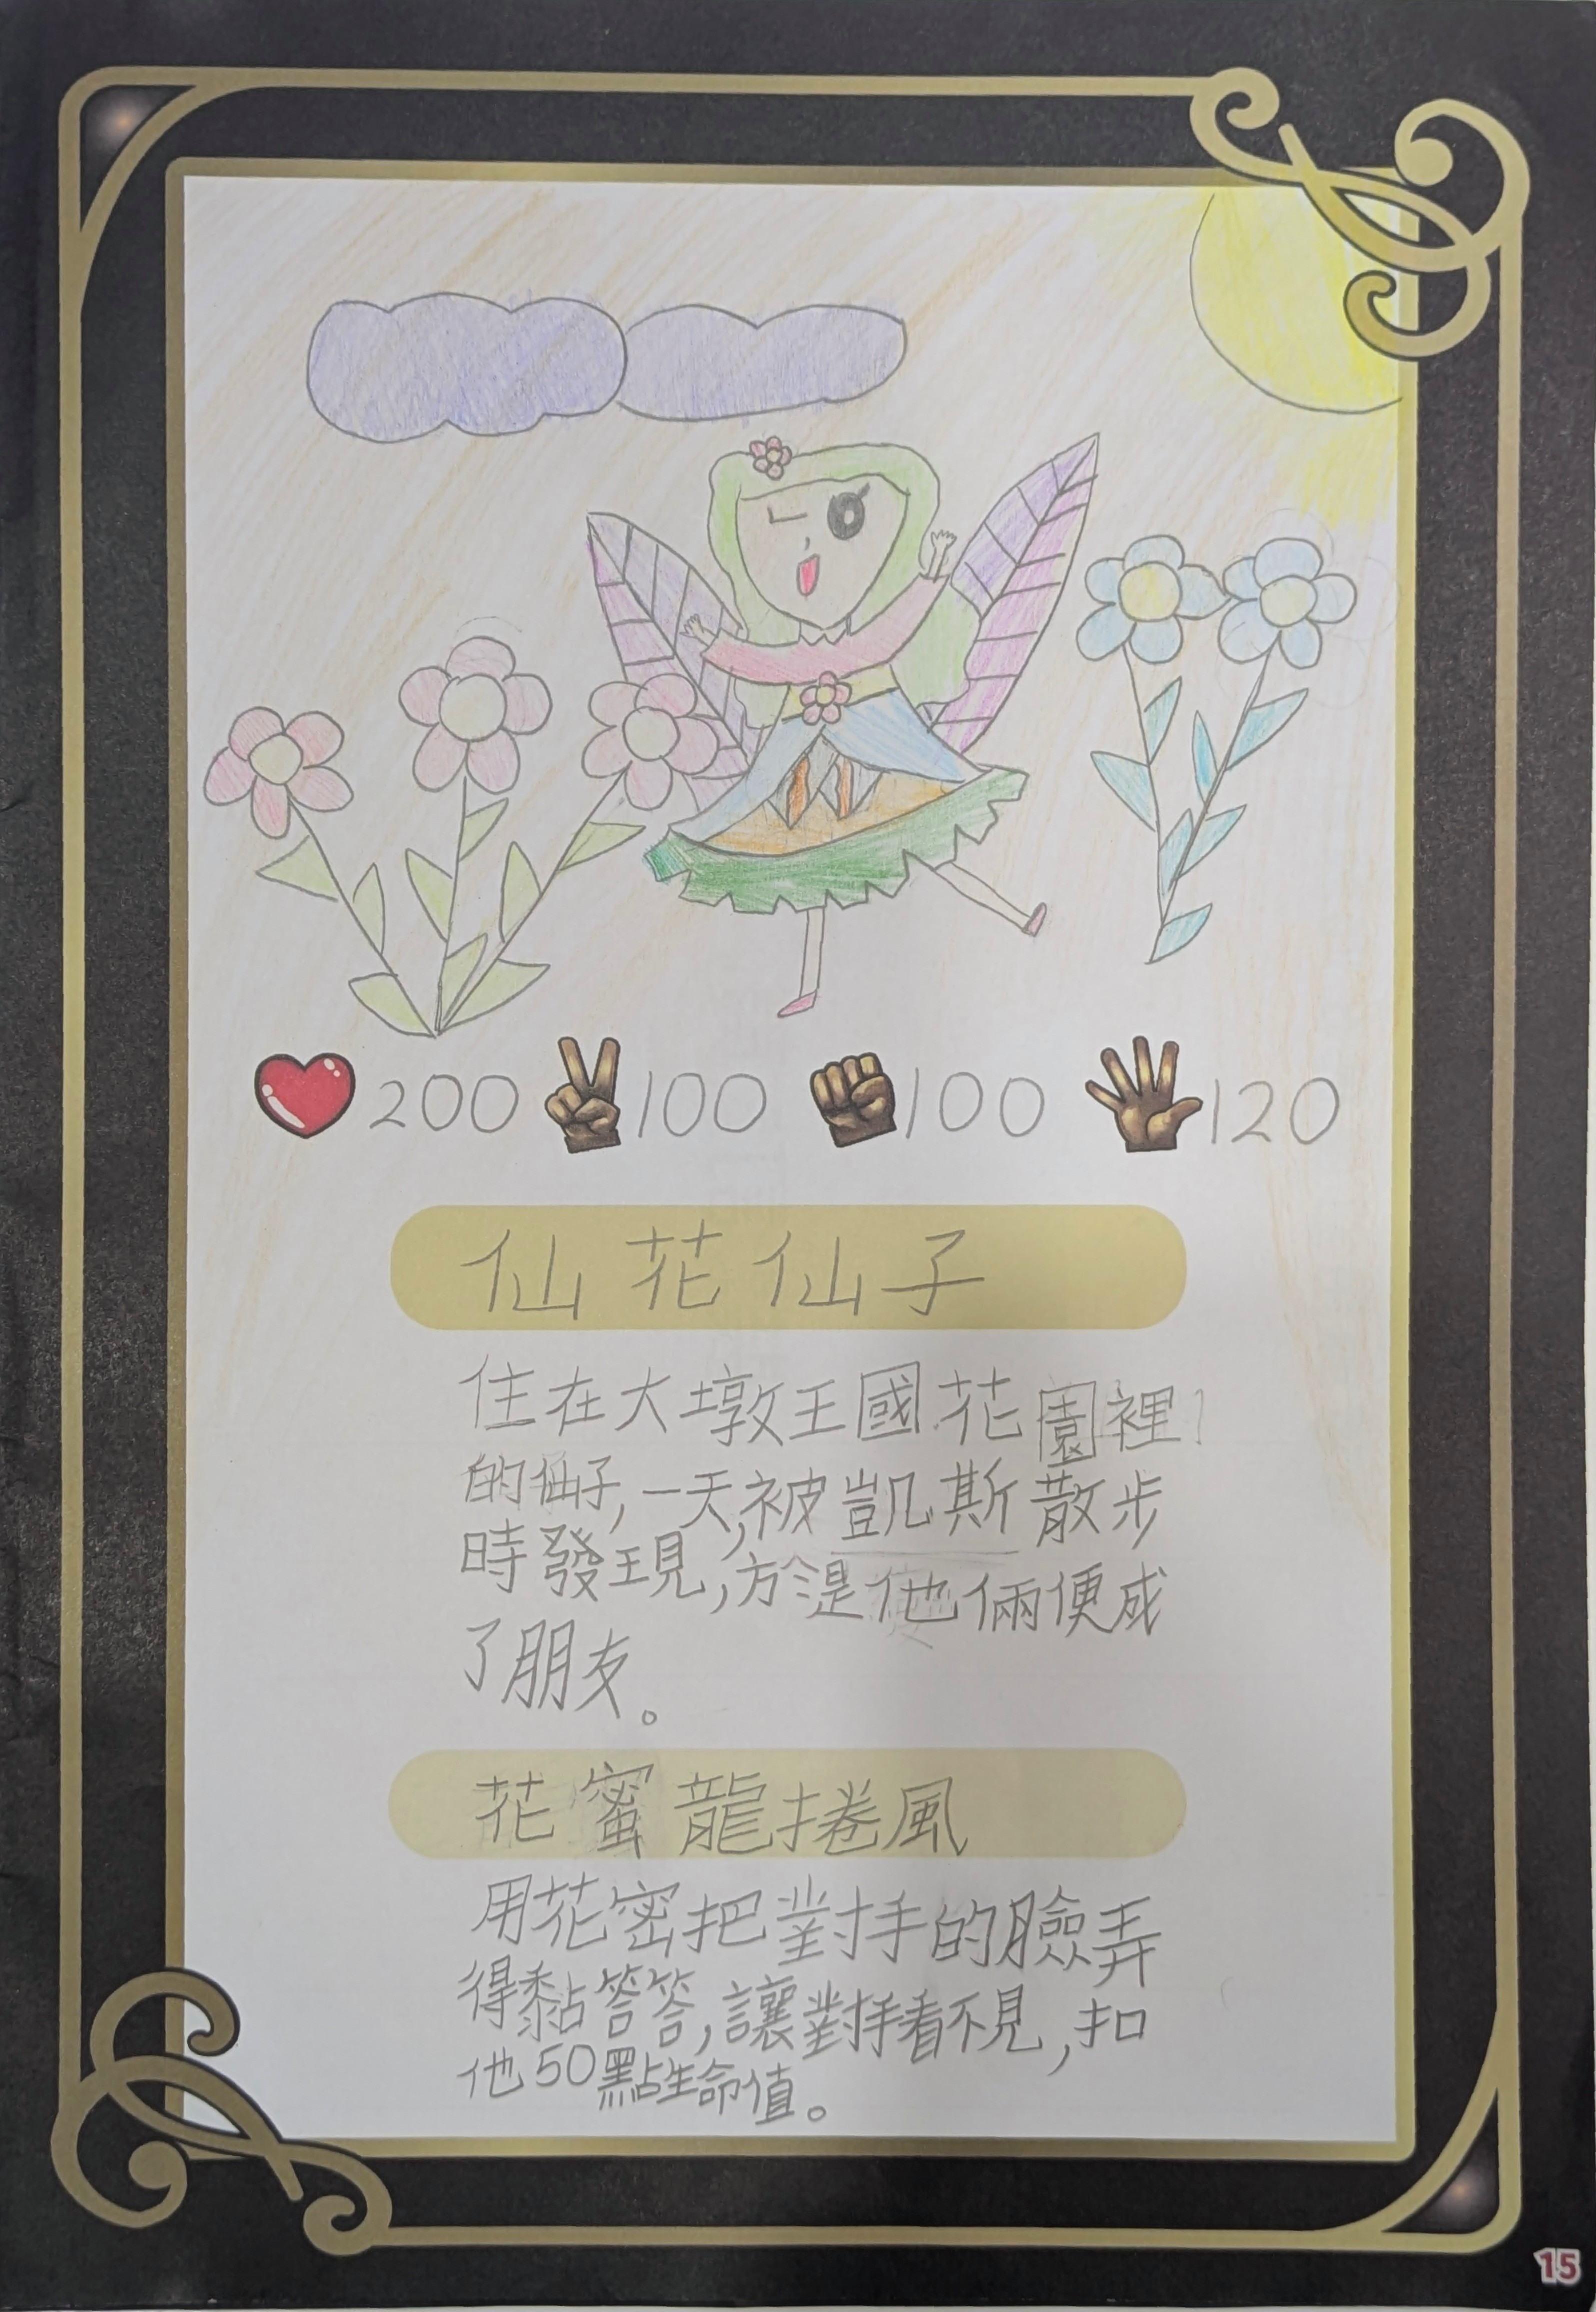 200 100 100 120
仙花仙子
住在大墩王國花園裡
的仙子,一天,被凱斯散步
時發現,於是他倆便成
了朋友。
花蜜龍捲風
用花密把對手的臉弄
得黏答答,讓對手看不見,扣
他50點生命值。
15